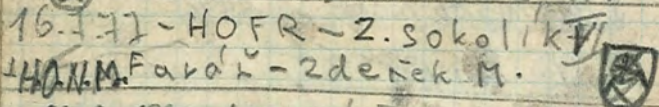 16.777 - HOFR - Z. sokolík VI
H.O.N.M. Farář - Zdeněk M.